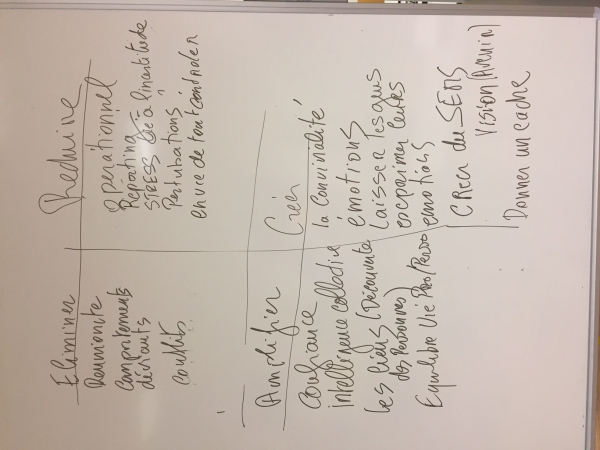 Eliminer
Reunionite
Comportements
déviants
conflits
Réduire
Opérationnel
Reporting
STRESS lié à l'incertitude
Perturbations
envie de tout contrôler
Amplifier
confiance
intelligence collective
les liens (Découverte
des personnes)
Equilibre Vie Pro/Perso
Créer
la convivialité
émotions
Laisser les gens
exprimer leurs
émotions
Créer du SENS
Vision (Avenir)
Donner un cadre